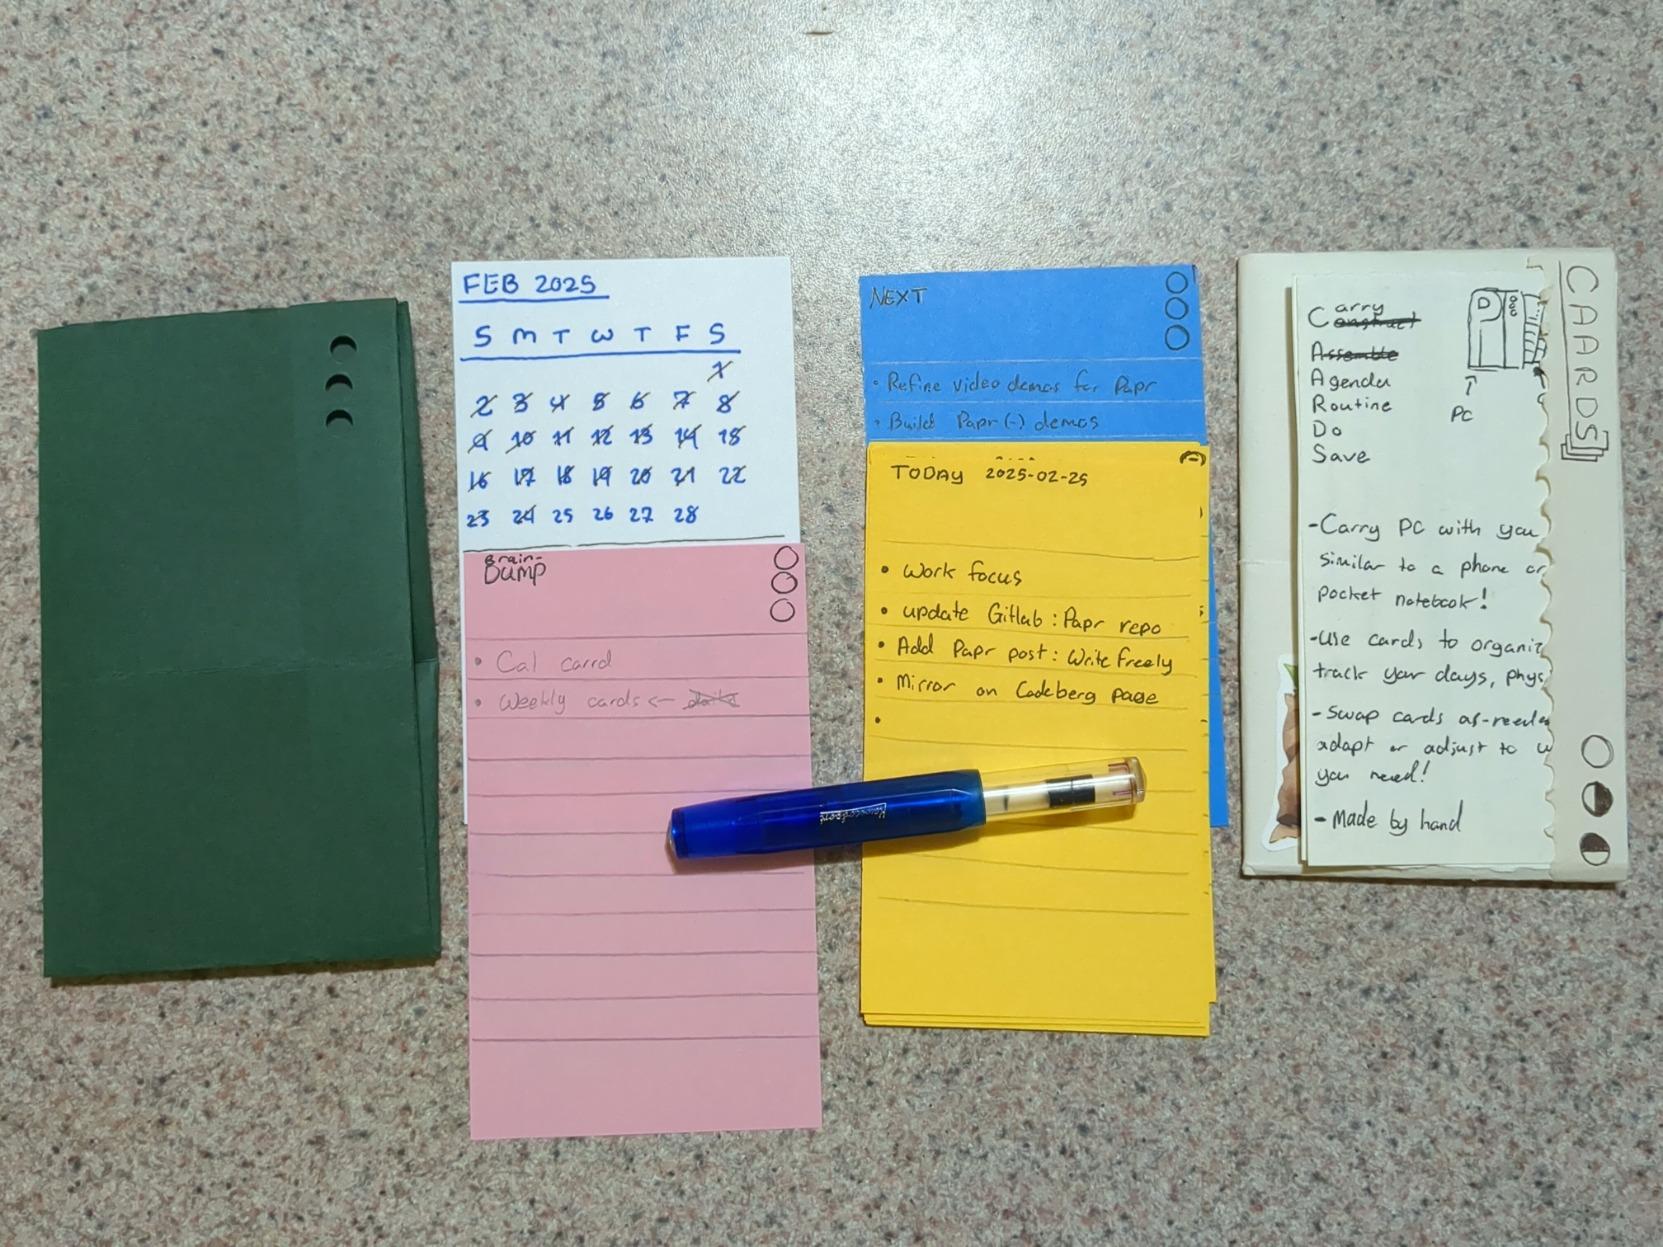 FEB 2025
S M T W T F S
1
2 3 4 5 6 7 8
9 10 11 12 13 14 15
16 17 18 19 20 21 22
23 24 25 26 27 28
Brain-
Dump
• Cal carrd
• Weekly cards <-
NEXT
• Refine video demos for Papr
• Build Papr(-) demos
TODAY 2025-02-25
• Work focus
• update Gitlab : Papr repo
• Add Papr post : Write freely
• Mirror on Codeberg page
•
Kaweco Sport
CAARDS
Carry
Construct
Assemble
Agenda
Routine
Do
Save
PC
-Carry PC with you
similar to a phone or
pocket notebook!
-Use cards to organiz
track your days, phys
-Swap cards as-need
adapt or adjust to w
you need!
-Made by hand